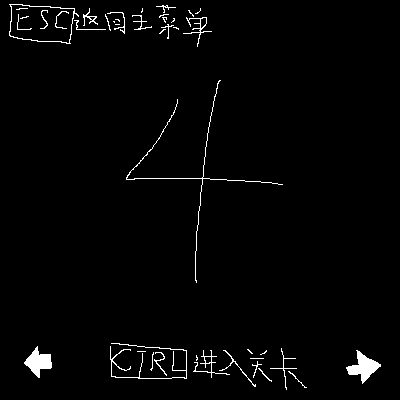 ESC返回主菜单
4
CTRL进入关卡